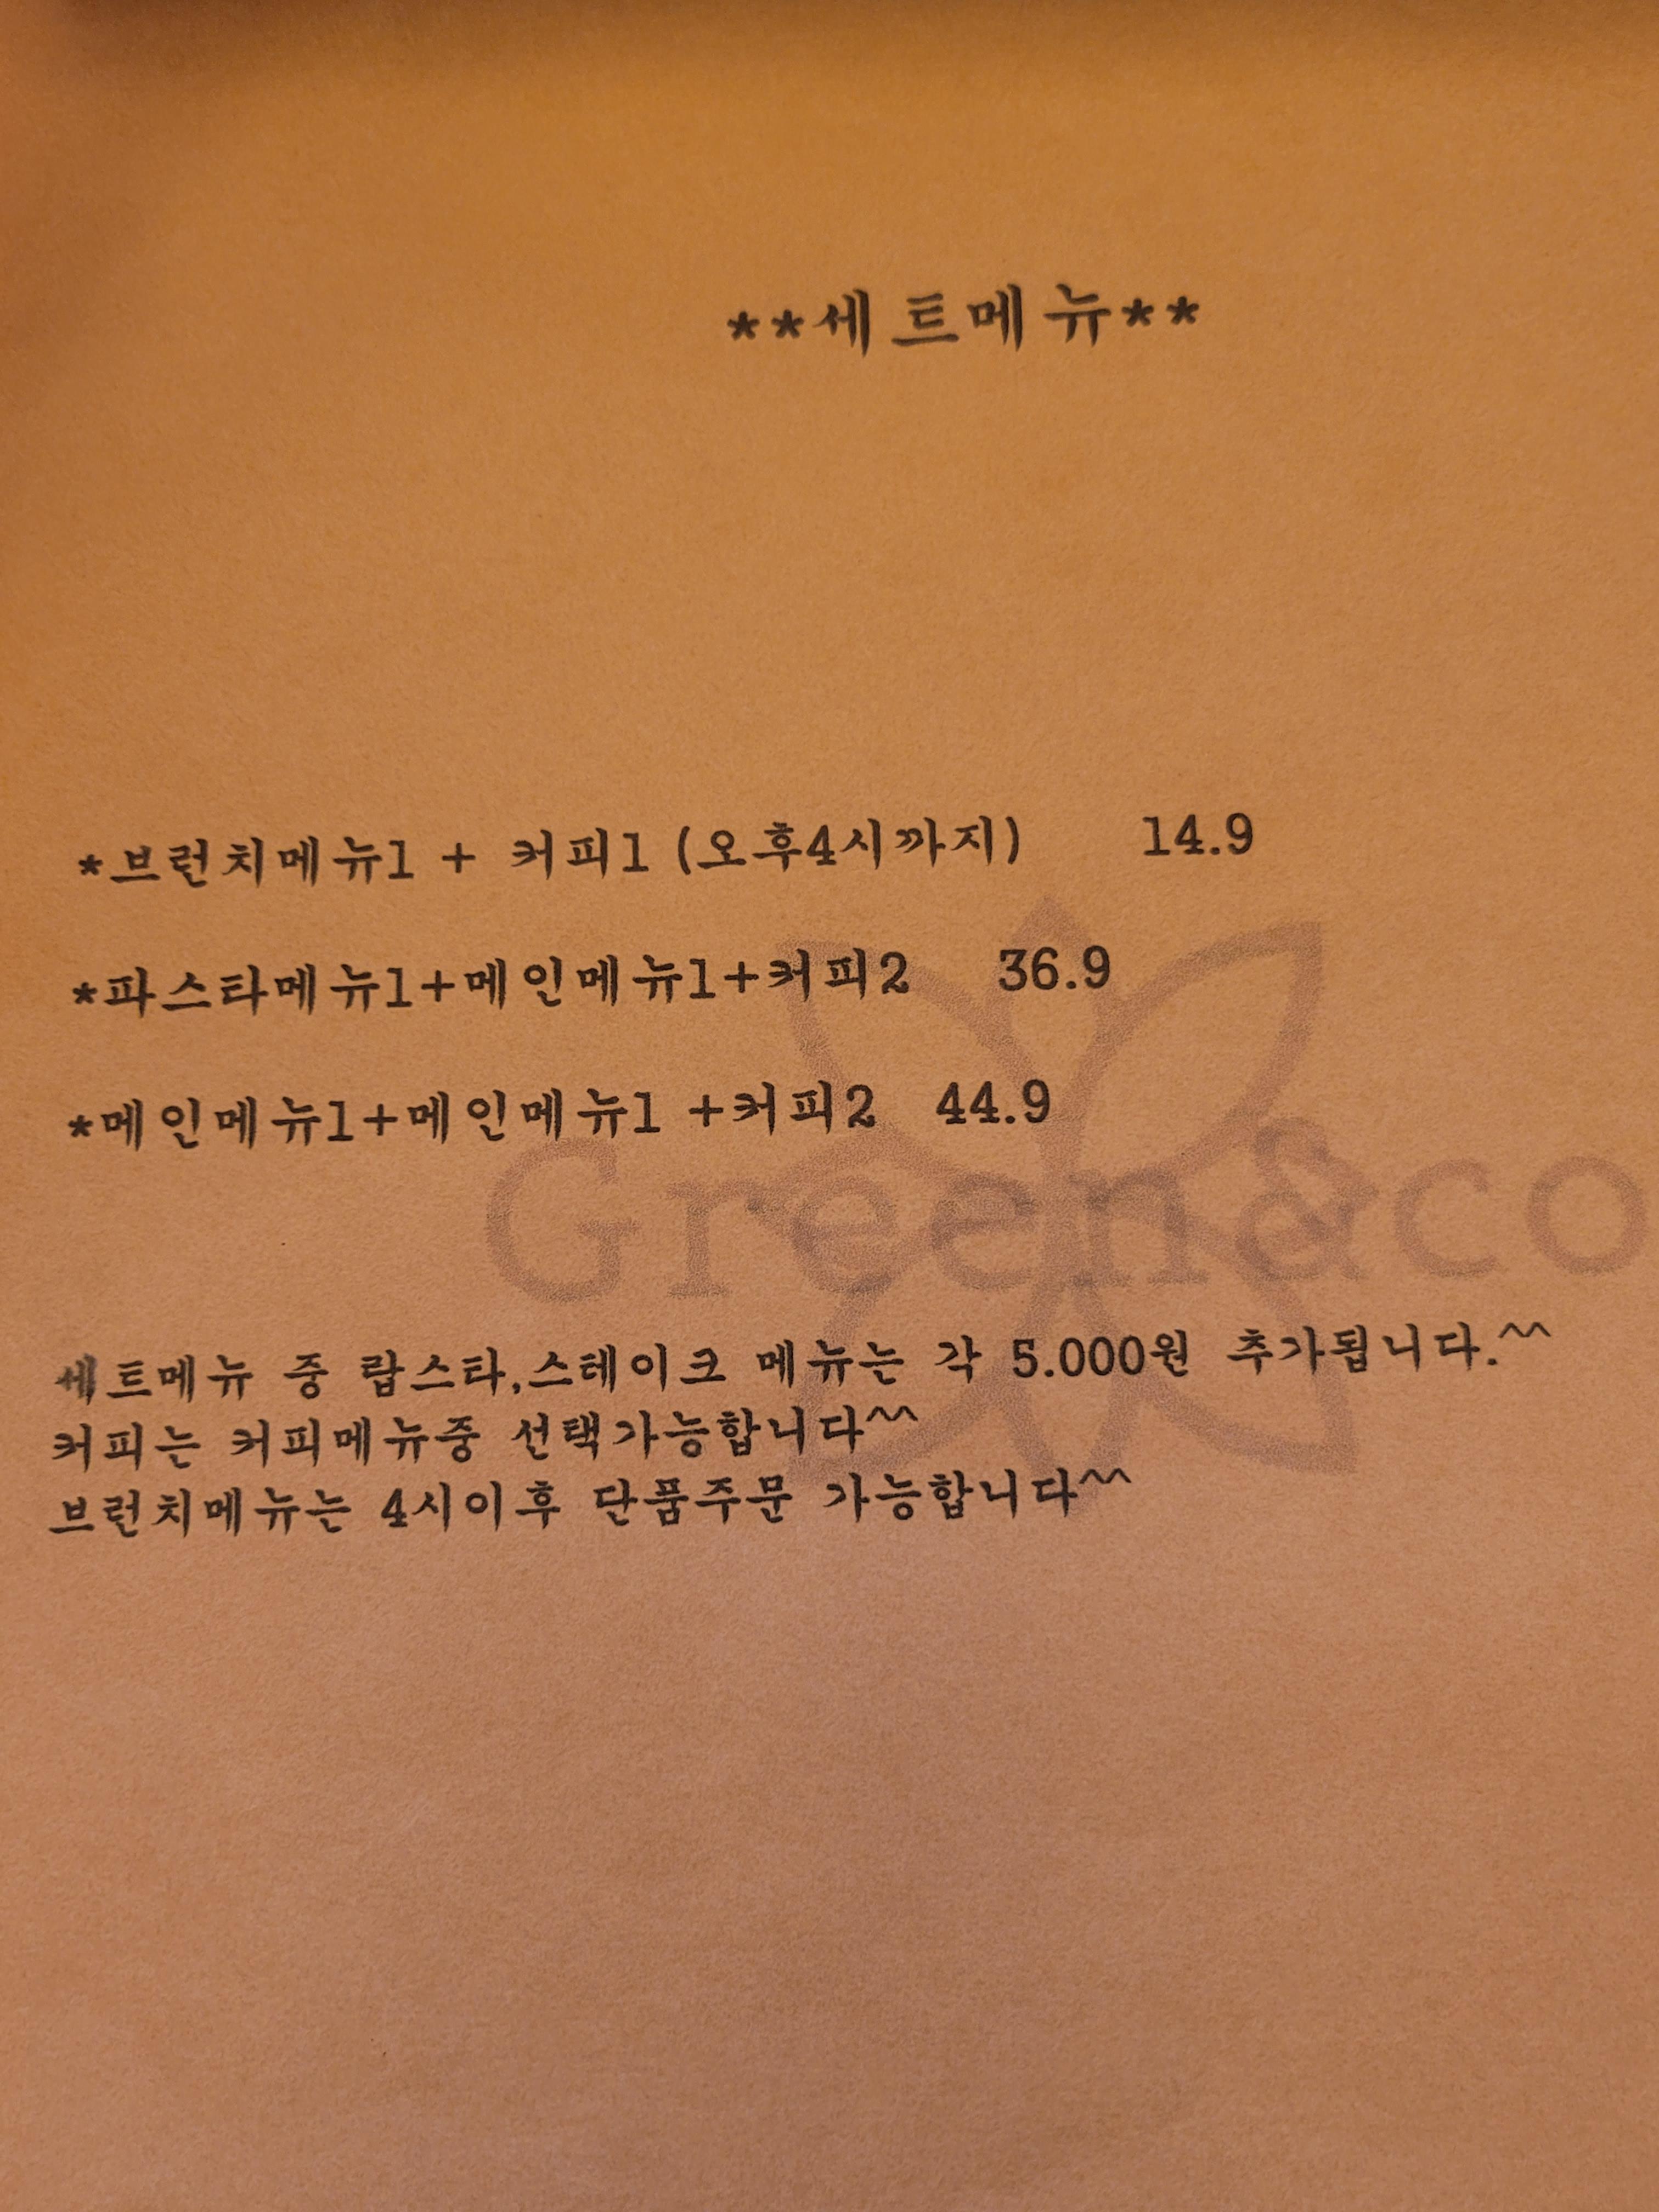 **세트메뉴**
*브런치메뉴1 + 커피1 (오후4시까지) 14.9
*파스타메뉴1+메인메뉴1+커피2 36.9
*메인메뉴1+메인메뉴1 +커피2 44.9
Green&co
세트메뉴 중 랍스타,스테이크 메뉴는 각 5.000원 추가됩니다.^^
커피는 커피메뉴중 선택가능합니다^^
브런치메뉴는 4시이후 단품주문 가능합니다^^